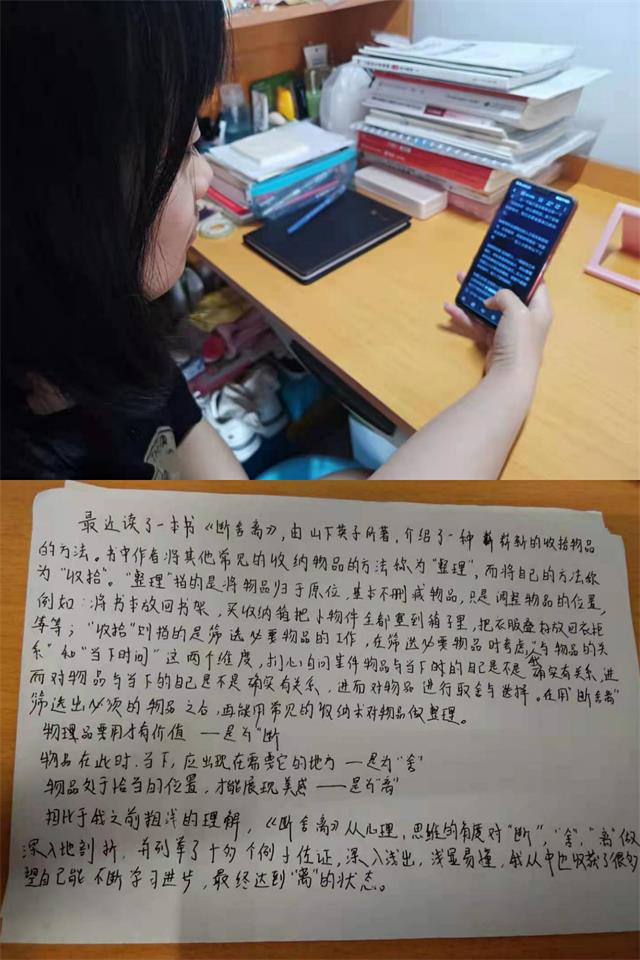 最近读了一本书《断舍离》,由山下英子所著,介绍了一种崭新的收拾物品
的方法。书中作者将其他常见的收纳物品的方法称为“整理”,而将自己的方法称
为“收拾”。“整理”指的是将物品归于原位,基本不删减物品,只是调整物品的位置,
例如:将书本放回书架,买收纳箱把小物件全都塞到箱子里,把衣服叠好放回衣柜
等等;“收拾”则指的是筛选必要物品的工作,在筛选必要物品时考虑“人与物品的关
系”和“当下时间”这两个维度,扪心自问某件物品与当下时的自己是不是确实有关系,进
而对物品与当下的自己是不是确实有关系,进而对物品进行取舍与选择。在用“断舍离”
筛选出必须的物品之后,再能用常见的收纳术对物品做整理。
物理品要用才有价值 —是为“断
物品在此时、当下,应出现在需要它的地方 —是为“舍”
物品处于恰当的位置,才能展现美感 ——是为“离”
相比于我之前粗浅的理解,《断舍离》从心理,思维的角度对“断”,“舍”,“离”做
深入地剖析,并列举了十多个例子佐证,深入浅出,浅显易懂,我从中也收获了很多
望自己能不断学习进步,最终达到“离”的状态。